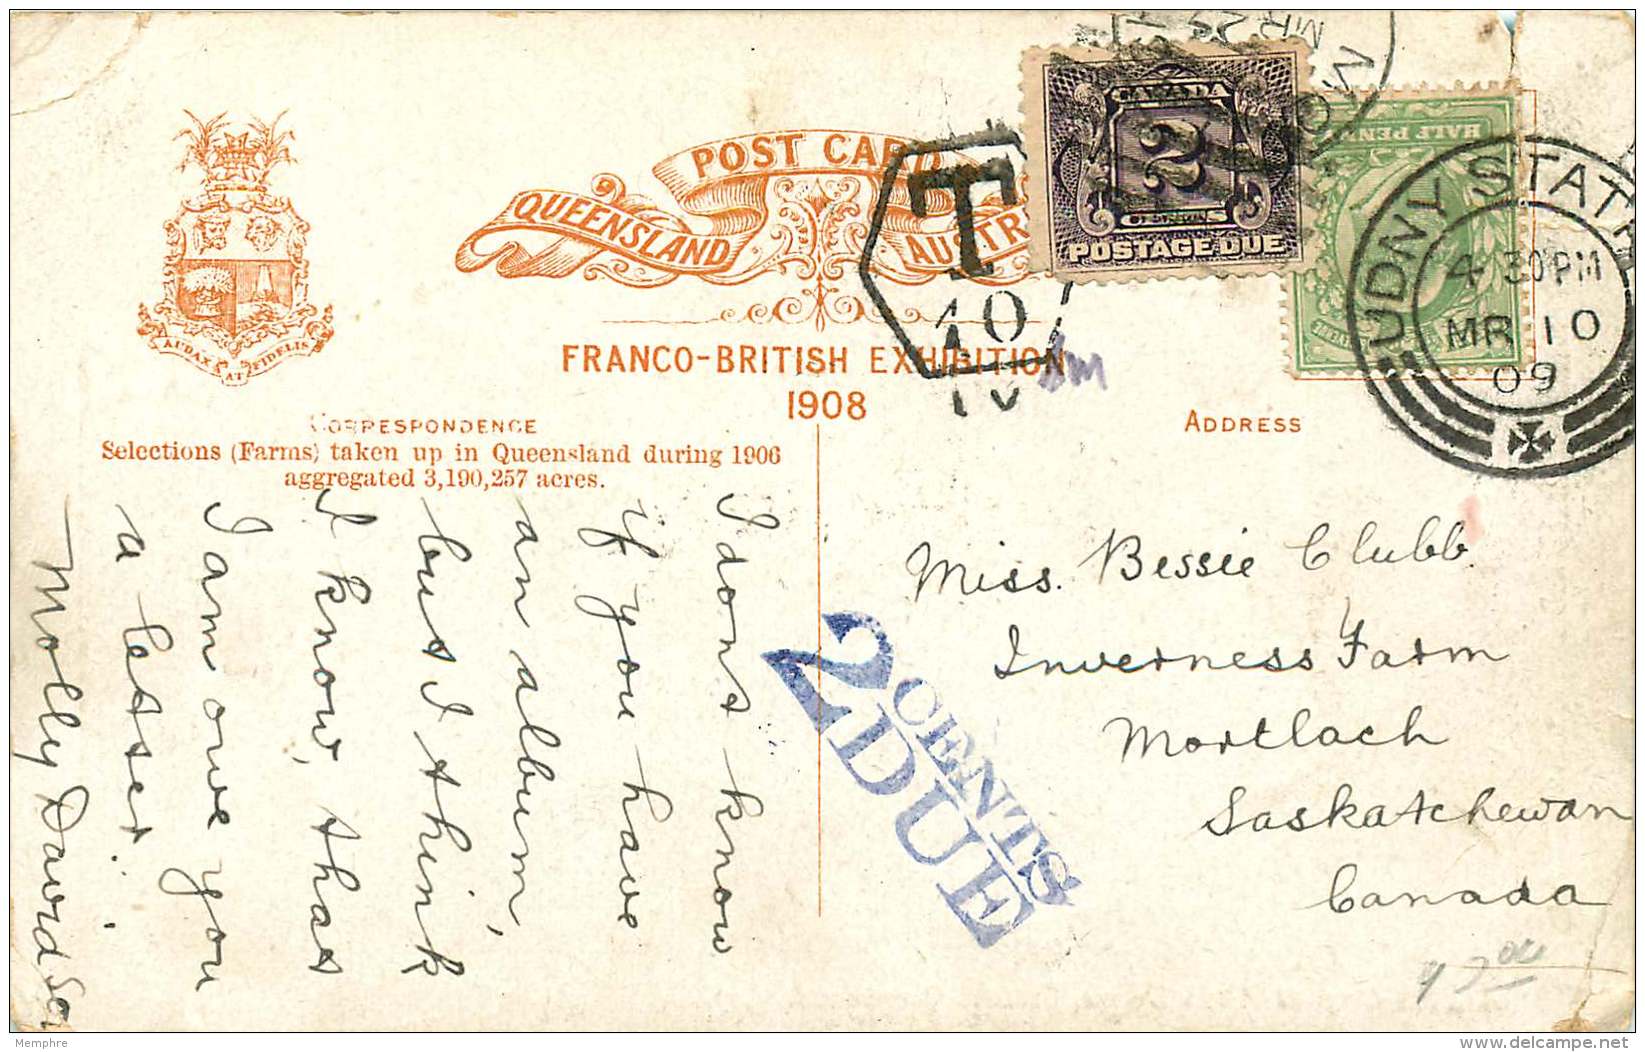 POST CARD
QUEENSLAND
AUSTR
AUDAX AT FIDELIS
FRANCO-BRITISH EXHIBITION
1908
CORRESPONDENCE
Selections (Farms) taken up in Queensland during 1906
aggregated 3,190,257 acres.
ADDRESS
I dont know
if you have
an album,
but I think
I know, that
I am owe you
a letter.
Molly Davidso
Miss. Bessie Clubb.
Inverness Farm
Mortlach
Saskatchewan
Canada
2
CENTS
DUE
T
10
CANADA
2
CENTS
POSTAGE DUE
HALF PENN
UDNY STAT
4 30 PM
MR 10
09
MR 2
MO
Memphre
delcampe.net